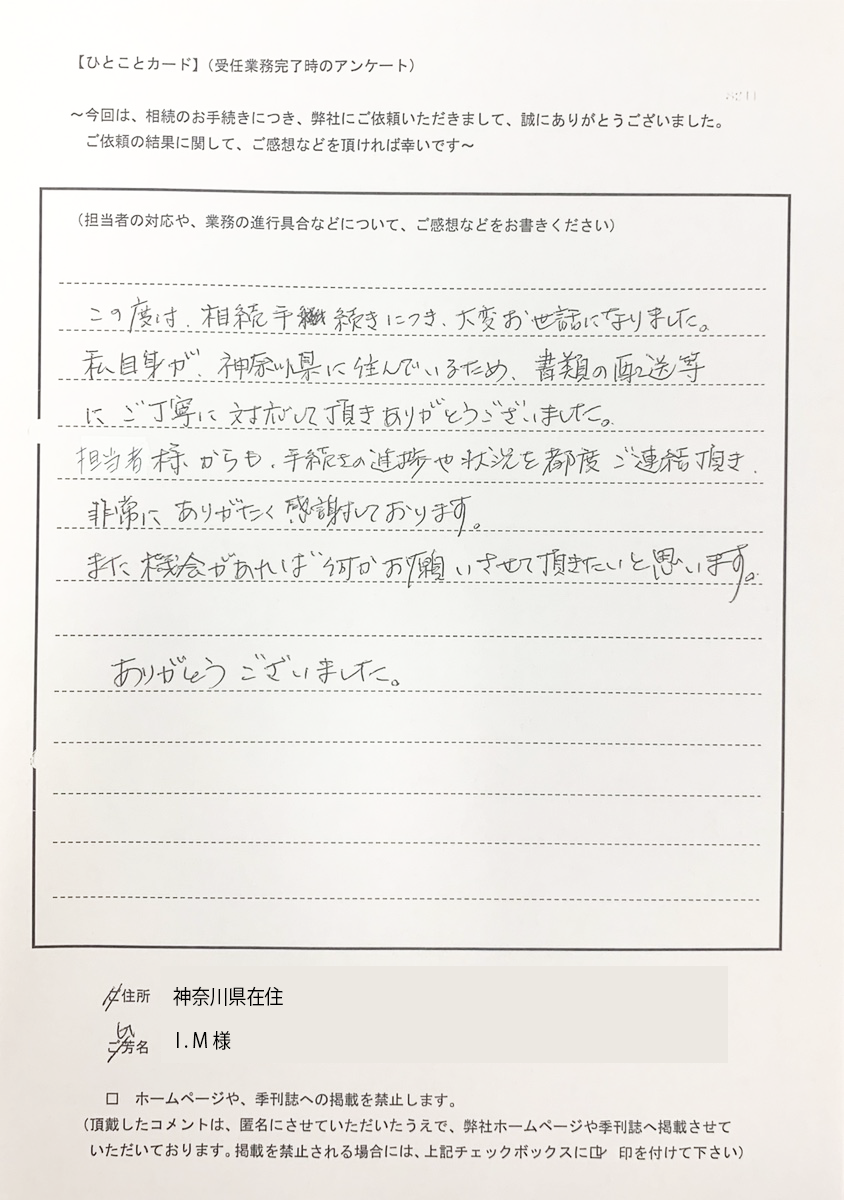 【ひとことカード】(受任業務完了時のアンケート)
～今回は、相続のお手続きにつき、弊社にご依頼いただきまして、誠にありがとうございました。
ご依頼の結果に関して、ご感想などを頂ければ幸いです～
(担当者の対応や、業務の進行具合などについて、ご感想などをお書きください)
この度は、相続手続きにつき、大変お世話になりました。
私自身が、神奈川県に住んでいるため、書類の配送等
にご丁寧に対応して頂きありがとうございました。
担当者様からも、手続きの進捗や状況を都度ご連絡頂き、
非常にありがたく感謝しております。
また機会があれば何かお願いさせて頂きたいと思います。
ありがとうございました。
住所 神奈川県在住
ご芳名 I.M様
□ ホームページや、季刊誌への掲載を禁止します。
(頂戴したコメントは、匿名にさせていただいたうえで、弊社ホームページや季刊誌へ掲載させて
いただいております。掲載を禁止される場合には、上記チェックボックスに☑ 印を付けて下さい)